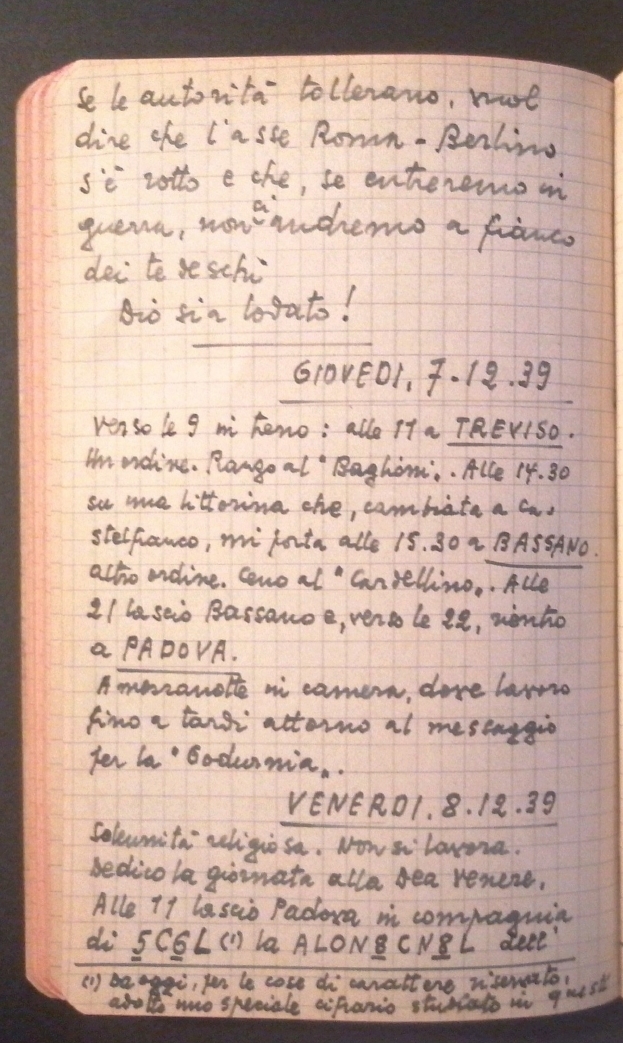 se le autorità tollerano, vuol
dire che l'asse Roma - Berlino
s'è rotto e che, se entreremo in
guerra, non ci andremo a fianco
dei tedeschi
Dio sia lodato!
GIOVEDI, 7-12.39
Verso le 9 in treno: alle 11 a TREVISO.
Un ordine. Pranzo al "Baglioni". Alle 14.30
su una littorina che, cambiata a Ca-
stelfranco, mi porta alle 15.30 a BASSANO.
altro ordine. Ceno al "Cardellino". Alle
21 lascio Bassano e, verso le 22, rientro
a PADOVA.
A mezzanotte in camera, dove lavoro
fino a tardi attorno al messaggio
per la "Godurnia".
VENERDI, 8.12.39
Solennità religiosa. Non si lavora.
Dedico la giornata alla Dea Venere.
Alle 11 lascio Padova in compagnia
di 5C6L (1) la ALON8CN8L dell'
(1) Da oggi, per le cose di carattere riservato,
adotto uno speciale cifrario studiato in questi